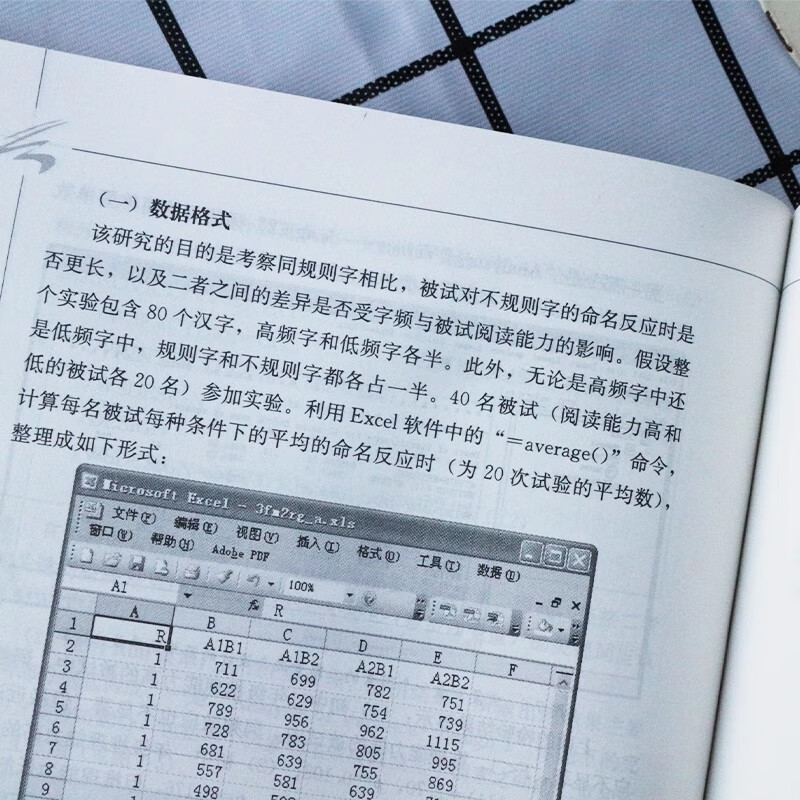 （一）数据格式
该研究的目的是考察同规则字相比，被试对不规则字的命名反应时是
否更长，以及二者之间的差异是否受字频与被试阅读能力的影响。假设整
个实验包含 80 个汉字，高频字和低频字各半。此外，无论是高频字中还
是低频字中，规则字和不规则字都各占一半。40 名被试（阅读能力高和
低的被试各 20 名）参加实验。利用 Excel 软件中的“=average()”命令，
计算每名被试每种条件下的平均的命名反应时（为 20 次试验的平均数），
整理成如下形式：
Microsoft Excel - 3fm2rg_a.xls
文件(F) 编辑(E) 视图(V) 插入(I) 格式(O) 工具(T) 数据(D)
窗口(W) 帮助(H) Adobe PDF
100%
A1 fx R
A B C D E F
1 R A1B1 A1B2 A2B1 A2B2
2 1 711 699 782 751
3 1 622 629 754 739
4 1 789 956 962 1115
5 1 728 783 805 995
6 1 681 639 755 869
7 1 557 581 639
8 1 498
9